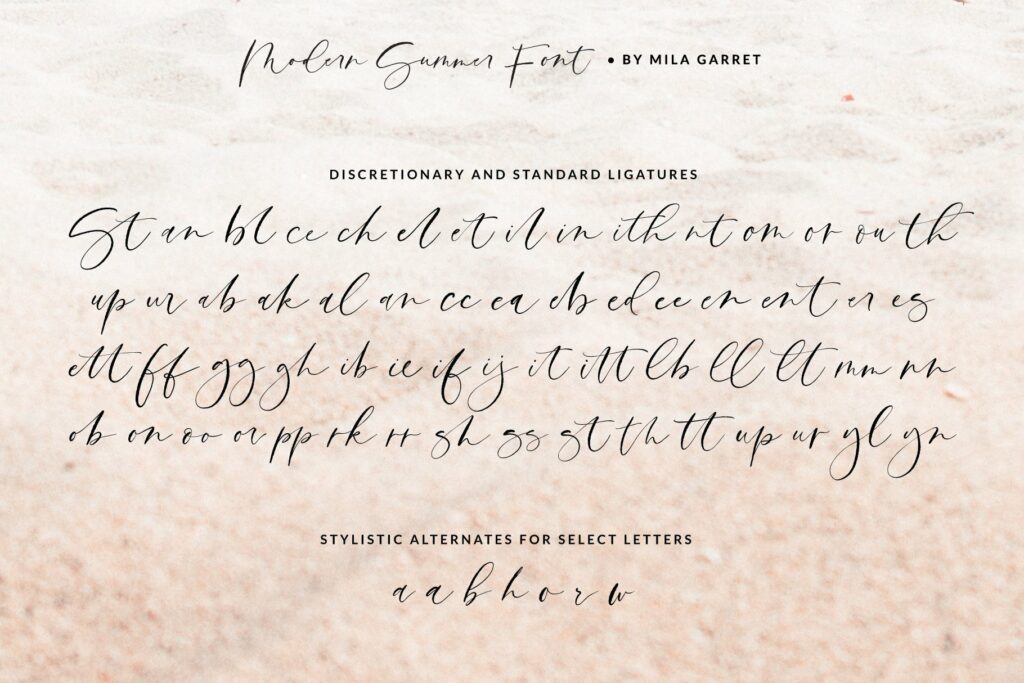 Modern Summer Font • BY MILA GARRET
DISCRETIONARY AND STANDARD LIGATURES
St an bl ce ch el et il in ith nt om or ou th
up ur ab ak al an cc ea eb ed ee en ent er es
ett ff gg gh ib ie if ij it itt lb ll lt mm nn
ob on oo or pp rk rr sh ss st th tt up ur yl yn
STYLISTIC ALTERNATES FOR SELECT LETTERS
a a b h o r w